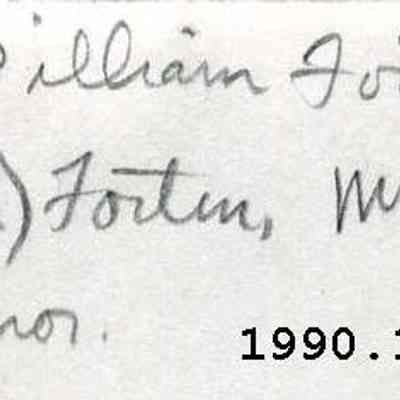 William Fo
) Forten, M
nor.
1990.1